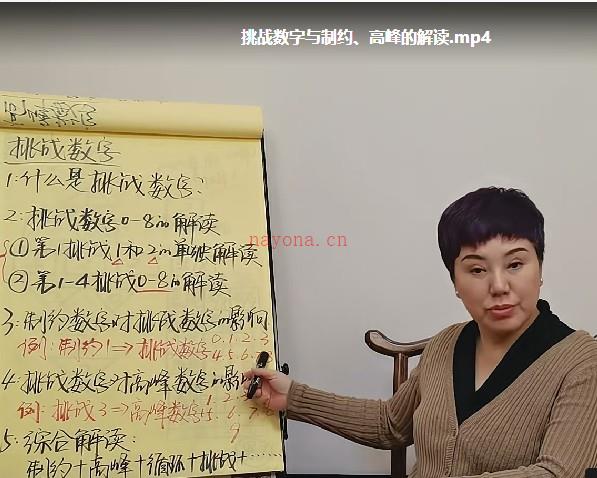 挑战数字与制约、高峰的解读.mp4
挑战数字
1:什么是挑战数字?
2:挑战数字0-8的解读
nayona.cn
①第1挑战1和2的单独解读
②第1-4挑战0-8的解读
3:制约数字对挑战数字的影响
例:制约1→挑战数字0.1.2.3
4.5.6.
4:挑战数字对高峰数字的影响
例:挑战3→高峰数字
9
5:综合解读:
制约+高峰+循环+挑战+……